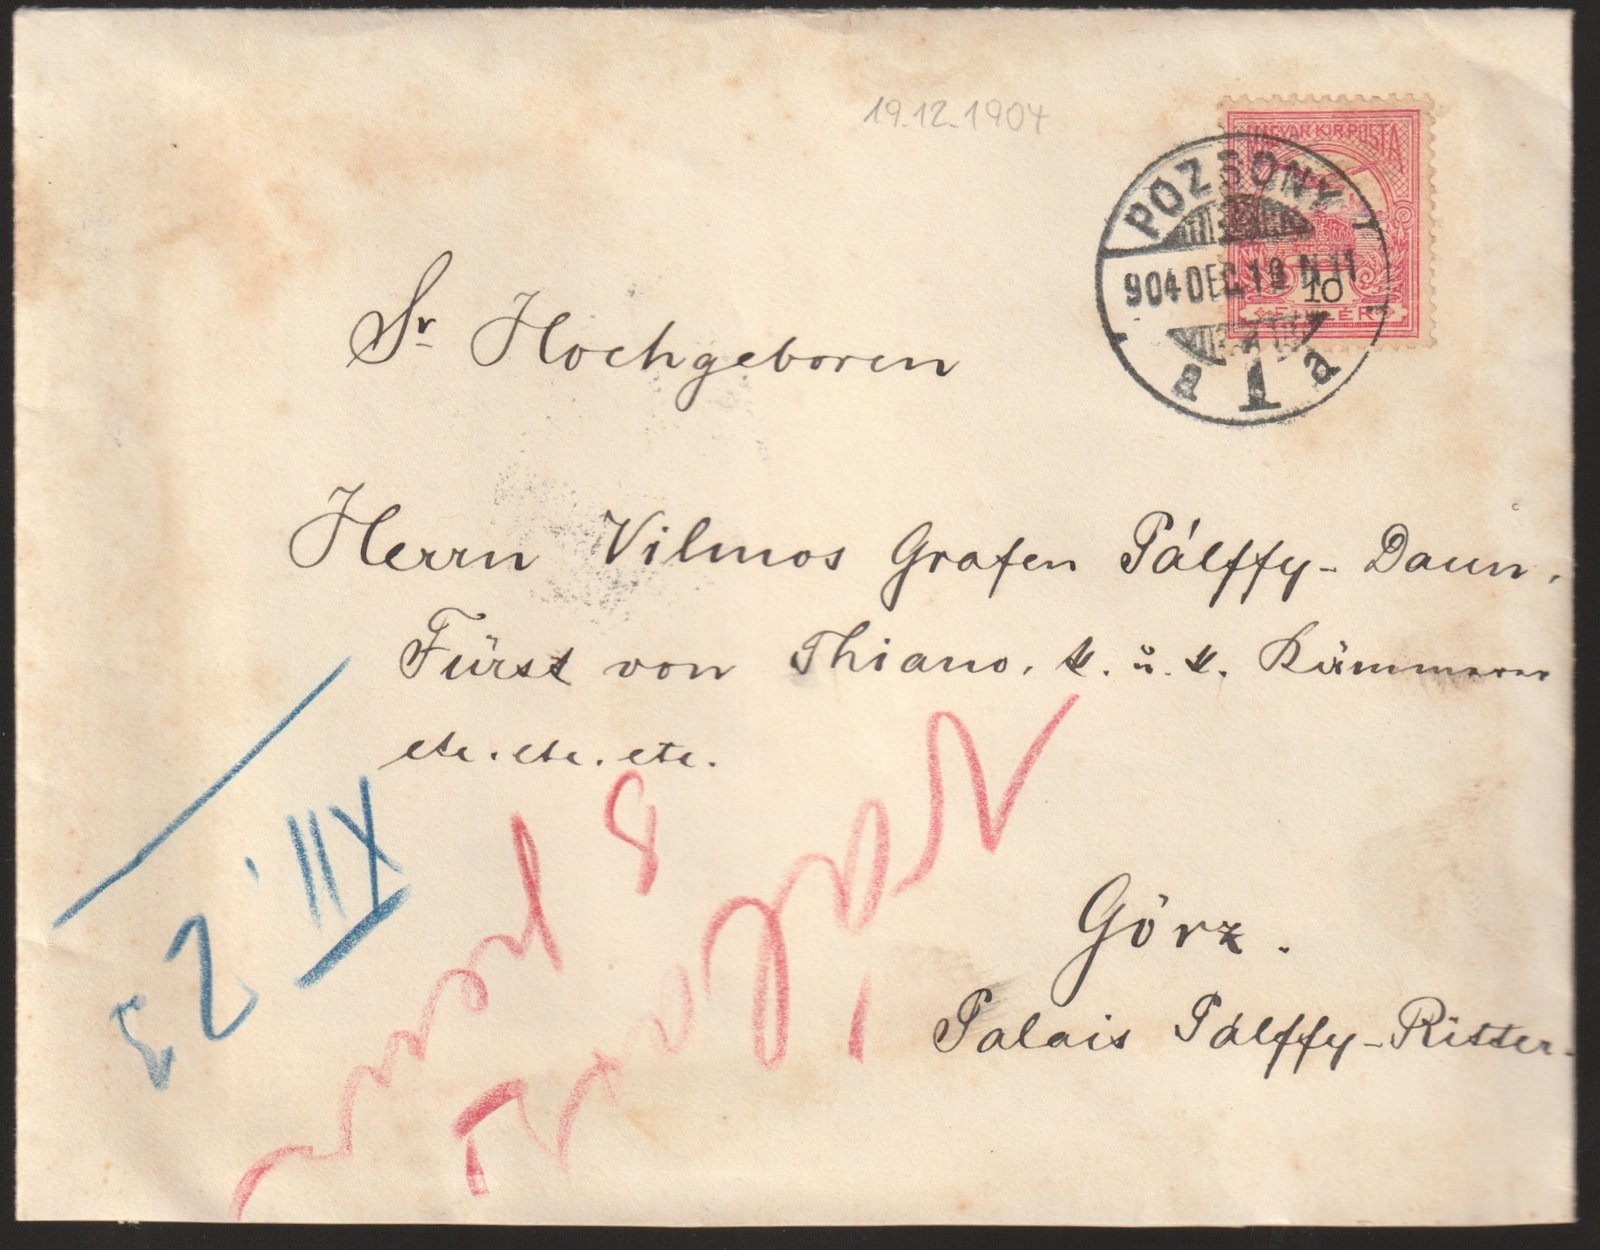 19.12.1904
MAGYAR KIR. POSTA
10
FILLÉR
POZSONY
904 DEC. 19 N. 11
a 1 a
Sr Hochgeboren
Herrn Vilmos Grafen Pálffy-Daun,
Fürst von Thiano, k. u. k. Kämmerer
etc. etc. etc.
Görz.
Palais Pálffy-Ritter-
XII